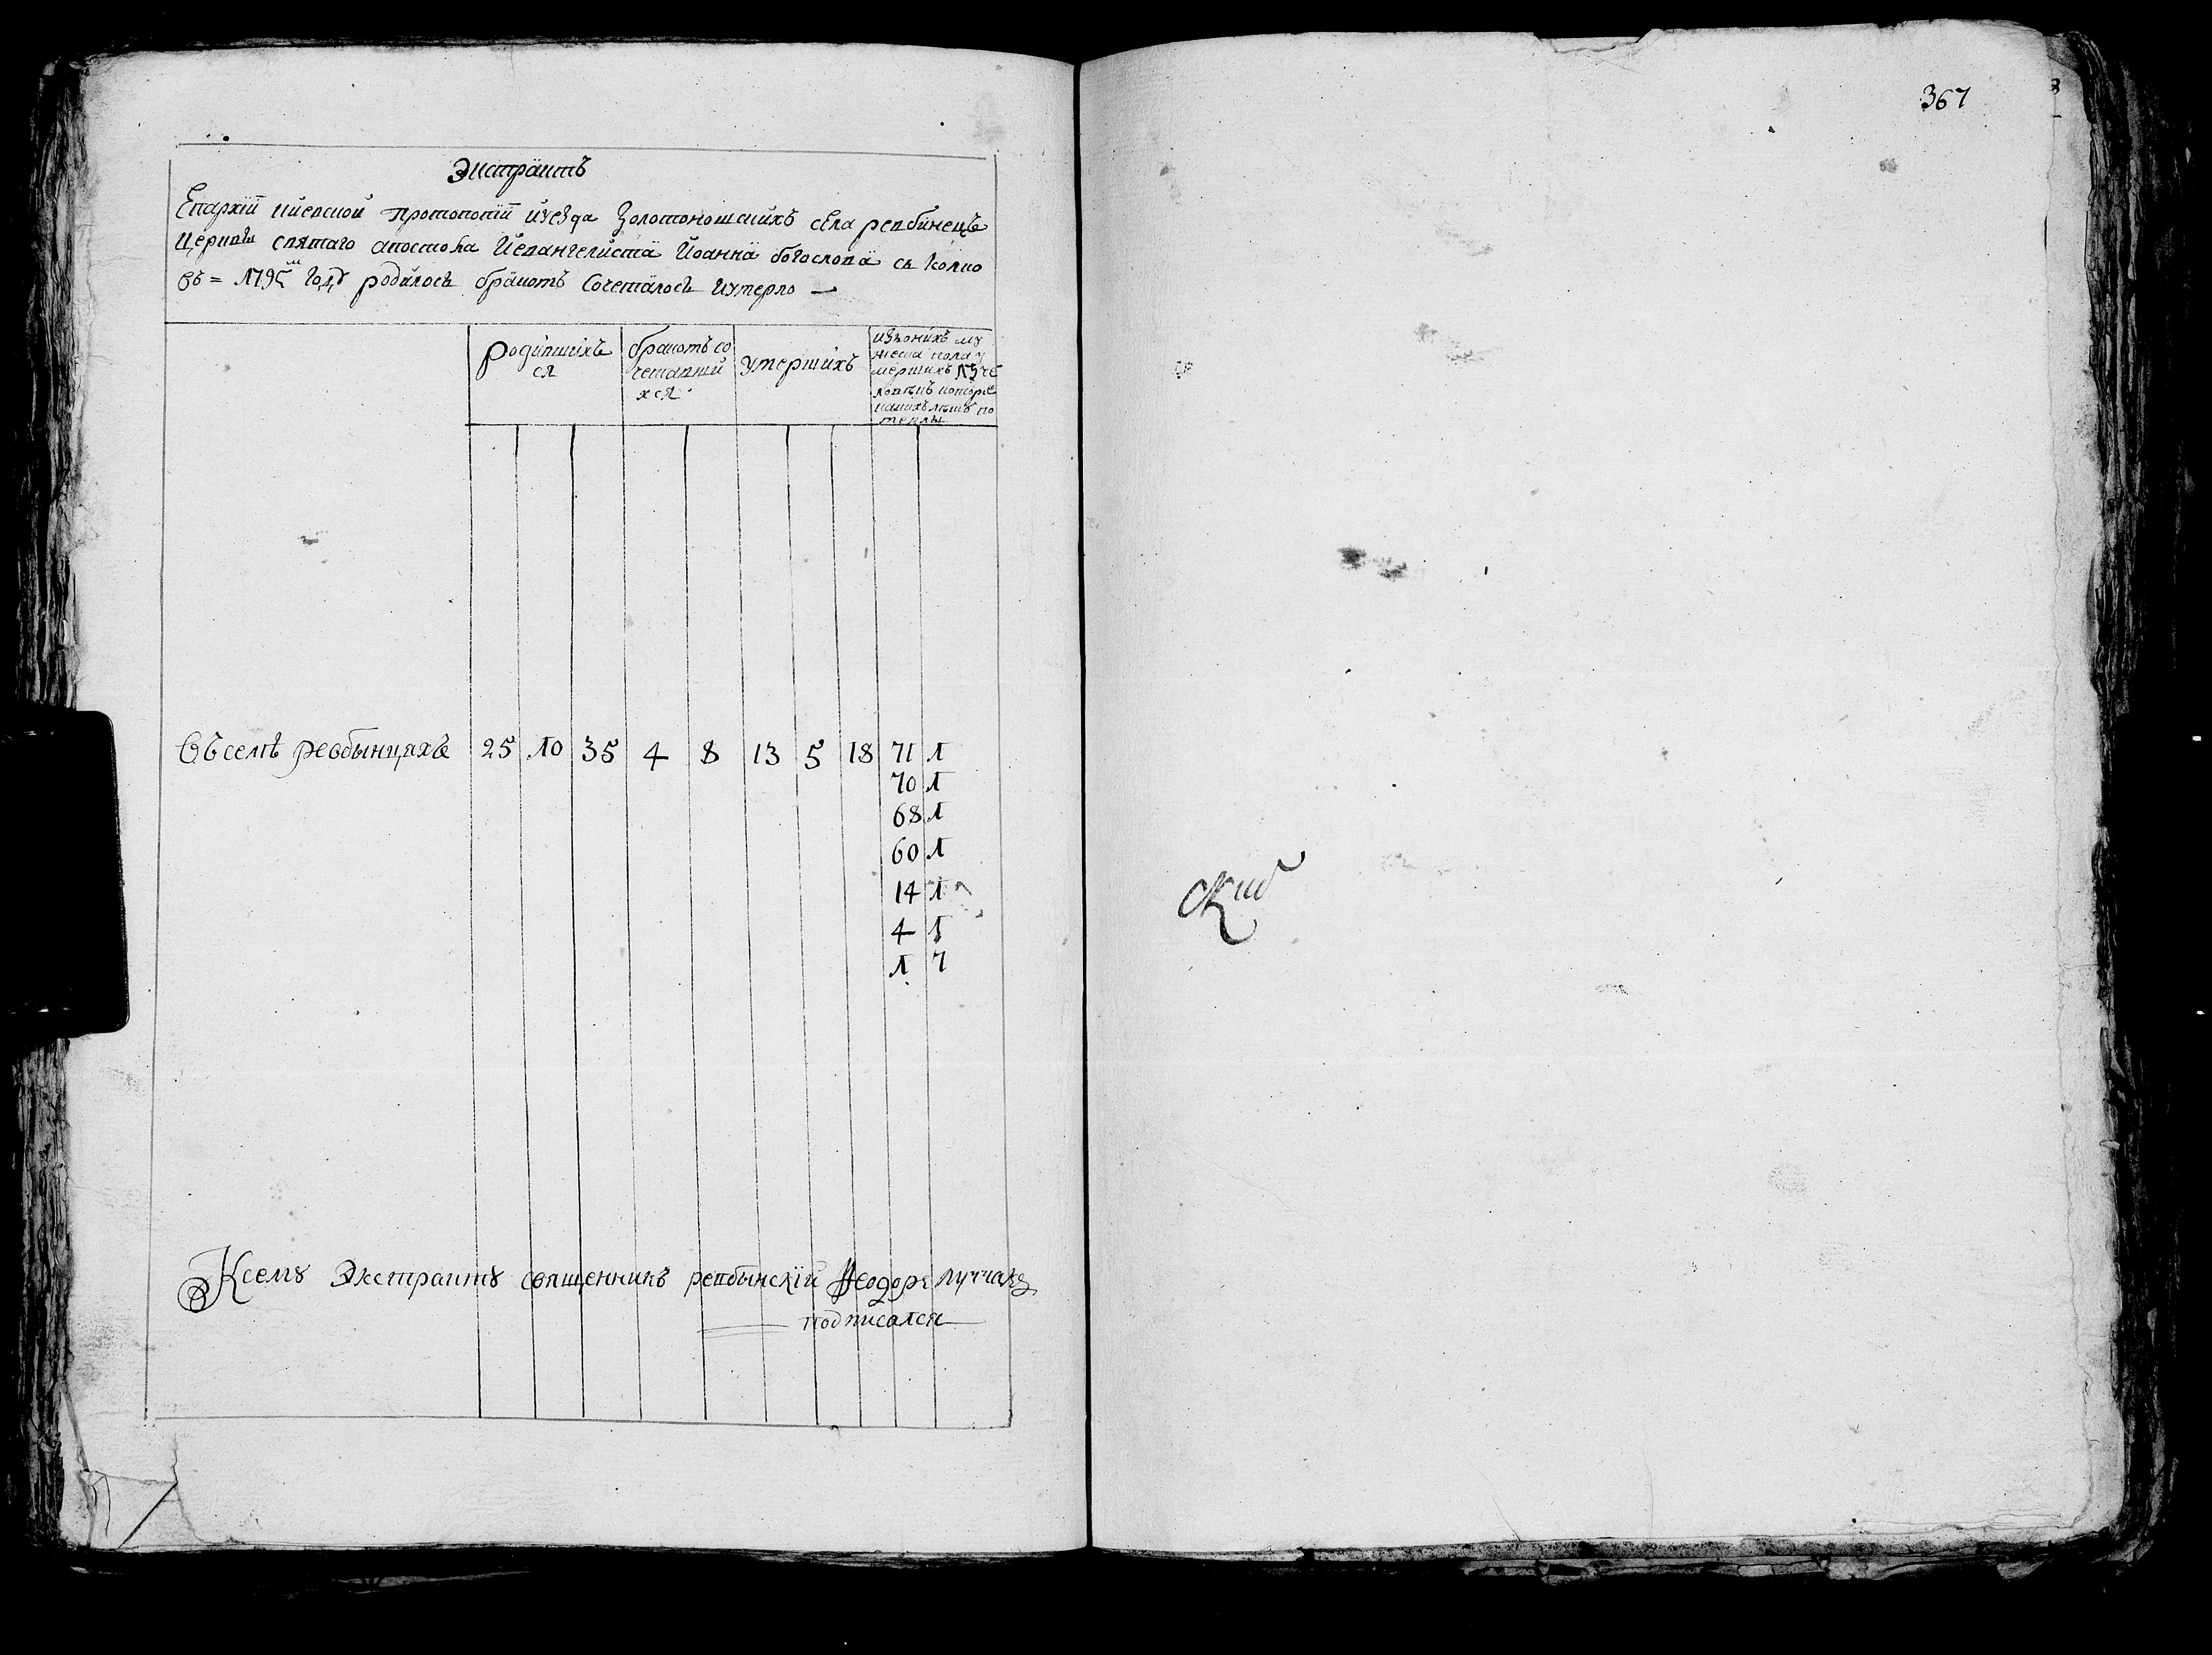 367
Экстрактъ
Епархіи кіевской протопопіи и уезда Золотоношскихъ села ревбинецъ
церкви святаго апостола и евангелиста Иоанна богослова сколко
въ = 179 году родилось бракомъ сочеталось и умерло —
родившихъ
ся
бракомъ со
четавши
хся
умершихъ
изъ оныхъ му
жеска пола у
мершихъ 13 че
ловекъ которе
какихъ летъ по
мерлы
въ селѣ ревбынцяхъ 25 10 35 4 8 13 5 18 71 1
70 1
68 1
60 1
14 1
4 1
1 7
К сему Экстракту священникъ ревбынскїй Феодоръ
подписался